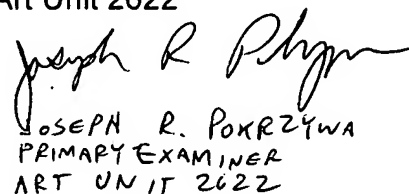 Art Unit 2622
Joseph R
JOSEPH R. POKRZYWA
PRIMARY EXAMINER
ART UNIT 2622